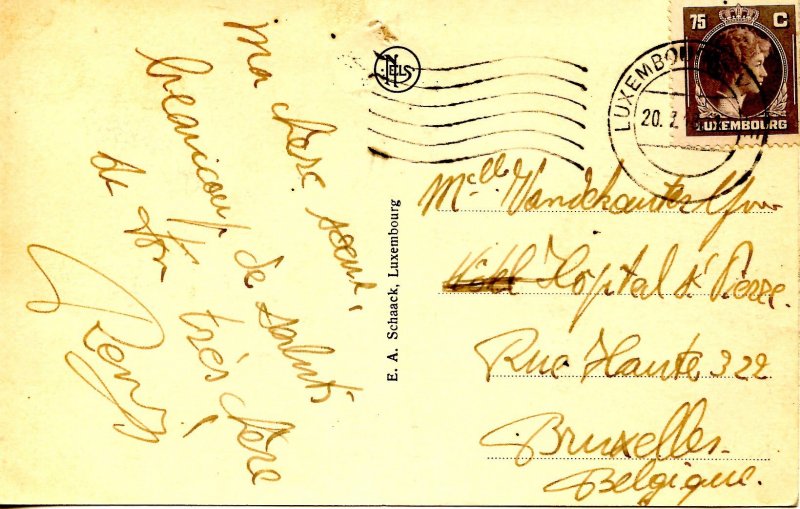 Ma chère sœur,
beaucoup de saluts
de ton très chère
Remy
NELS
E. A. Schaack, Luxembourg
75 C
LUXEMBOURG
LUXEMBO
20. 7.
Melle Vandekauter
Hôpital St Pierre
Rue Haute, 322
Bruxelles.
Belgique.